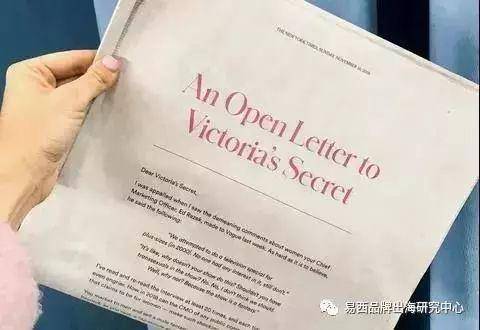 THE NEW YORK TIMES, SUNDAY, NOVEMBER 18, 2018
An Open Letter to
Victoria's Secret
Dear Victoria's Secret,
I was appalled when I saw the demeaning comments about women your Chief
Marketing Officer, Ed Razek, made to Vogue last week. As hard as it is to believe,
he said the following:
"We attempted to do a television special for
plus-sizes [in 2000]. No one had any interest in it, still don't."
"It's like, why doesn't your show do this? Shouldn't you have
transsexuals in the show? No. No, I don't think we should.
Well, why not? Because the show is a fantasy."
I've read and re-read the interview at least 20 times, and each time
even angrier. How in 2018 can the CMO of any public company
that claims to be for women — make such
易西品牌出海研究中心